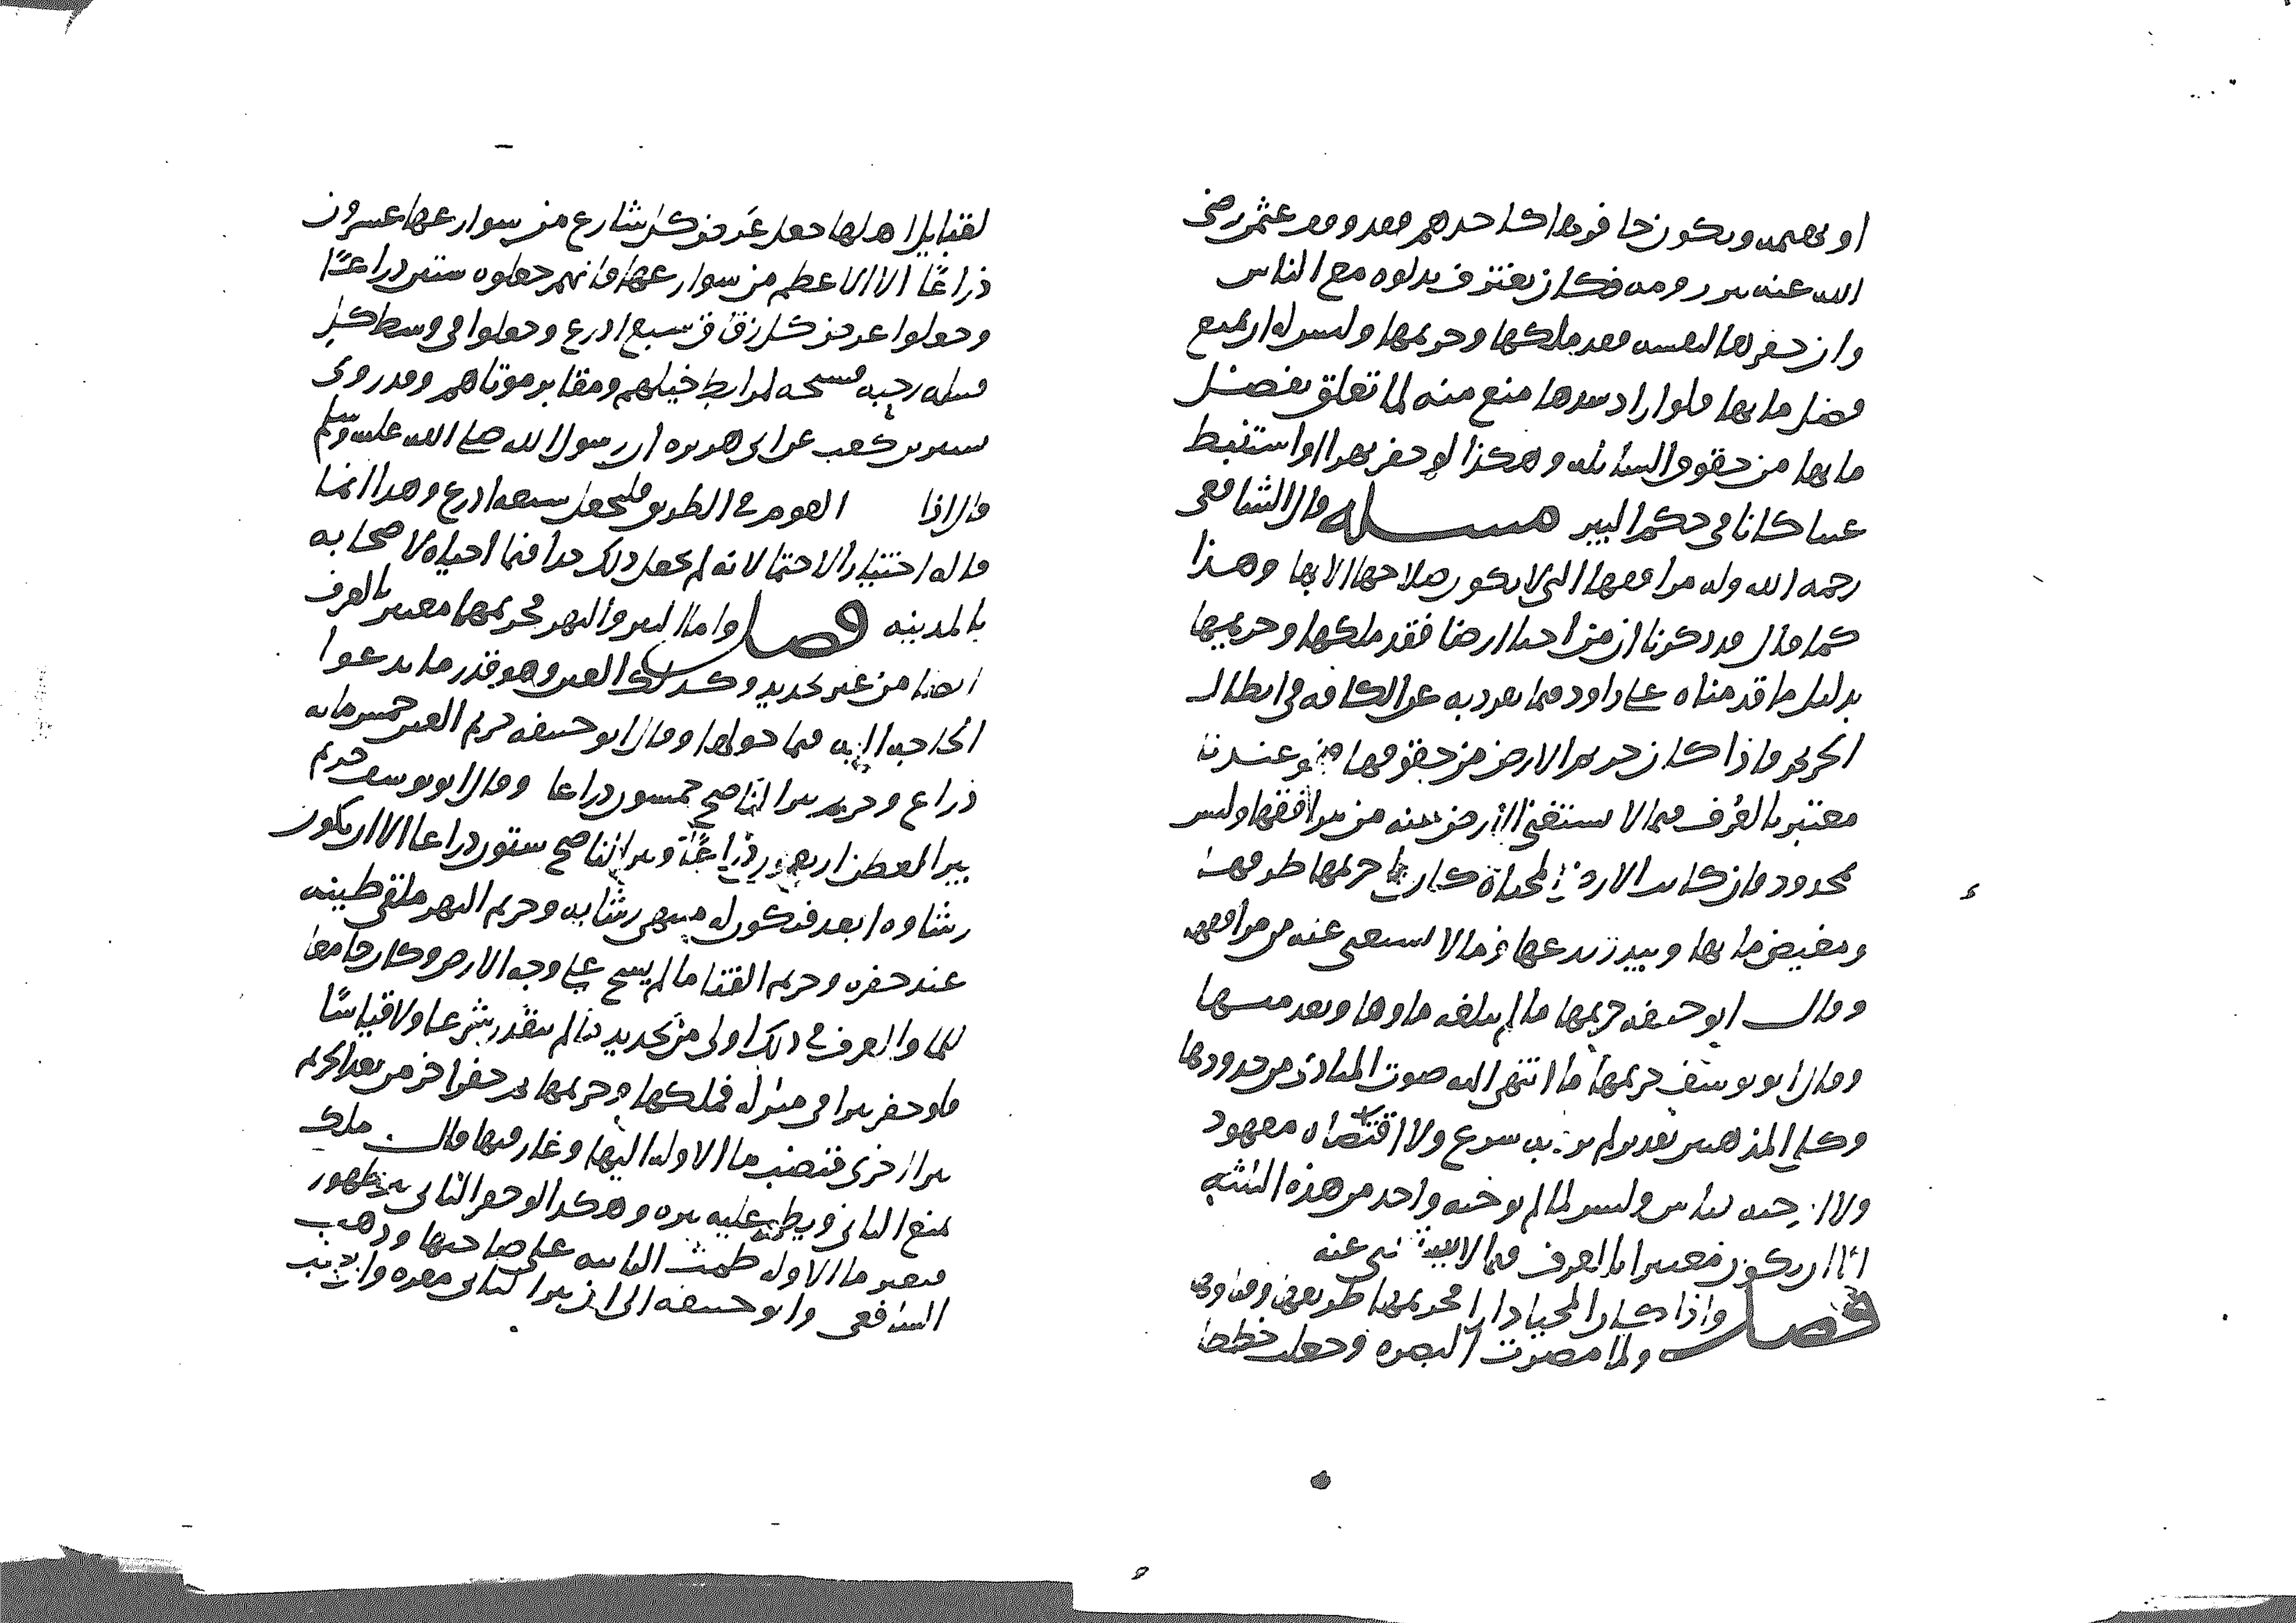 او بهيمه ويكون حافرها كاحدهم فقد وقف عثمن رضى
الله عنه بير رومه فكان يغترف بدلوه مع الناس
وان حفرها لنفسه فقد ملكها وحريمها وليس له ان يمنع
فضل مابها فلو اراد سدها منع منه لما تعلق بفضل
مابها من حقوق السابله وهكذا لو حفر نهرا او استنبط
عينا كانا فى حكم البير مسله قال الشافعى
رحمه الله وله مرافقها التى لا يكون صلاحها الا بها وهذا
كما قال قد ذكرنا ان من احيا ارضا فقد ملكها وحريمها
بدليل ما قدمناه على داود فيما تفرد به عن الكافه فى ابطال
الحريم فاذا كان حريم الارض من حقوقها فهو عندنا
معتبر بالعرف فيما لا تستغنى الارض عنه من مرافقها وليس
بمحدود فان كانت الارض المحياة كان حريمها طرقها
ومغيض مابها وبيدر زرعها وما لا يستغنى عنه من مرافقها
وقال ابو حنيفه حريمها ما لم يبلغه ماوها وبعد منها
وقال ابو يوسف حريمها ما انتهى اليه صوت المنادى من حدودها
وكلى المذهبين تقدير لم يرد به شرع ولا اقتضاه معهود
ولا اوجبه قياس وليس لما لم يوجبه واحد من هذه الثلثه
الا ان يكون معتبرا بالعرف فيما لا يستغنى عنه
فصل واذا كان المحيا دارا فحريمها طريقها وفناوها
ولما مصرت البصره وجعلت خططا
لقبايل اهلها جعل عرض كل شارع من شوارعها عشرون
ذراعًا الا الاعظم من شوارعها فانهم جعلوه ستين ذراعًا
وجعلوا عرض كل زقاق سبع اذرع وجعلوا فى وسط كل
قبيله رحبه فسيحه لمرابط خيلهم ومقابر موتاهم وقد روى
بشير بن كعب عن ابى هريره ان رسول الله صلى الله عليه وسلم
قال اذا القوم فى الطريق فليجعل سبعه اذرع وهذا انما
قاله اختيارا لا حتما لانه لم يجعل ذلك حدا فيما احياه لاصحابه
بالمدينه فصل واما البير والنهر فحريمهما معتبر بالعرف
ايضا من غير تحديد وكذلك العين وهو قدر ما تدعوا
الحاجه اليه فيما حولها وقال ابو حنيفه حريم العين خمس مايه
ذراع وحريم بير الناضح خمسون ذراعا وقال ابو يوسف حريم
بير العطن اربعون ذراعًا وبير الناضح ستون ذراعا الا ان يكون
رشاوه ابعد فيكون له منتهى رشايه وحريم النهر ملقى طينه
عند حفره وحريم القنا ما لم يسح على وجه الارض وكان جامعا
للما والعرف فى ذلك اولى من تحديد ما لم يتقدر شرعا ولا قياسًا
فلو حفر بيرا فى منزل فملكها وحريمها ثم حفر اخر من بعد الحريم
بيرا اخرى فنضب ما الاوله اليها وغار فيها قال ملك
يمنع الثانى ويطم عليه بيره وهكذا لو حفر الثانى بير طهور
فتغير ما الاوله طمت الثانيه على صاحبها وذهب
الشافعى وابو حنيفه الى ان بير الثانى مقره وان نضب